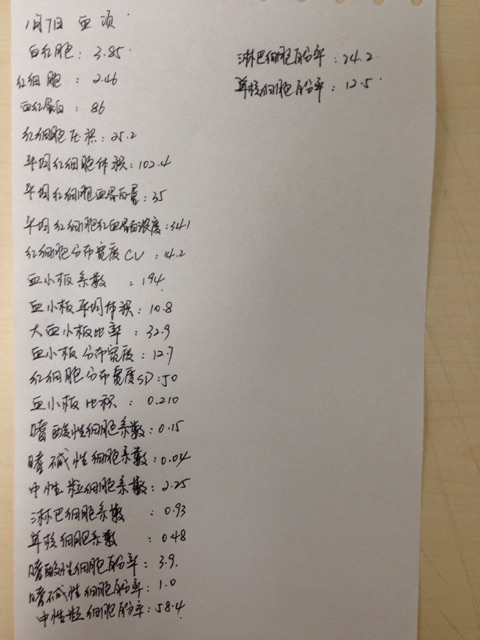 1月7日 血项
白红胞：3.85
红细胞：2.46
血红蛋白：86
红细胞压积：25.2
平均红细胞体积：102.4
平均红细胞血蛋白量：35
平均红细胞红血蛋白浓度：341
红细胞分布宽度CV：14.2
血小板系数：194
血小板平均体积：10.8
大血小板比率：32.9
血小板分布宽度：12.7
红细胞分布宽度SD：50
血小板比积：0.210
嗜酸性细胞系数：0.15
嗜碱性细胞系数：0.04
中性粒细胞系数：2.25
淋巴细胞系数：0.93
单核细胞系数：0.48
嗜酸性细胞百分率：3.9
嗜碱性细胞百分率：1.0
中性粒细胞百分率：58.4
淋巴细胞百分率：24.2
单核细胞百分率：12.5